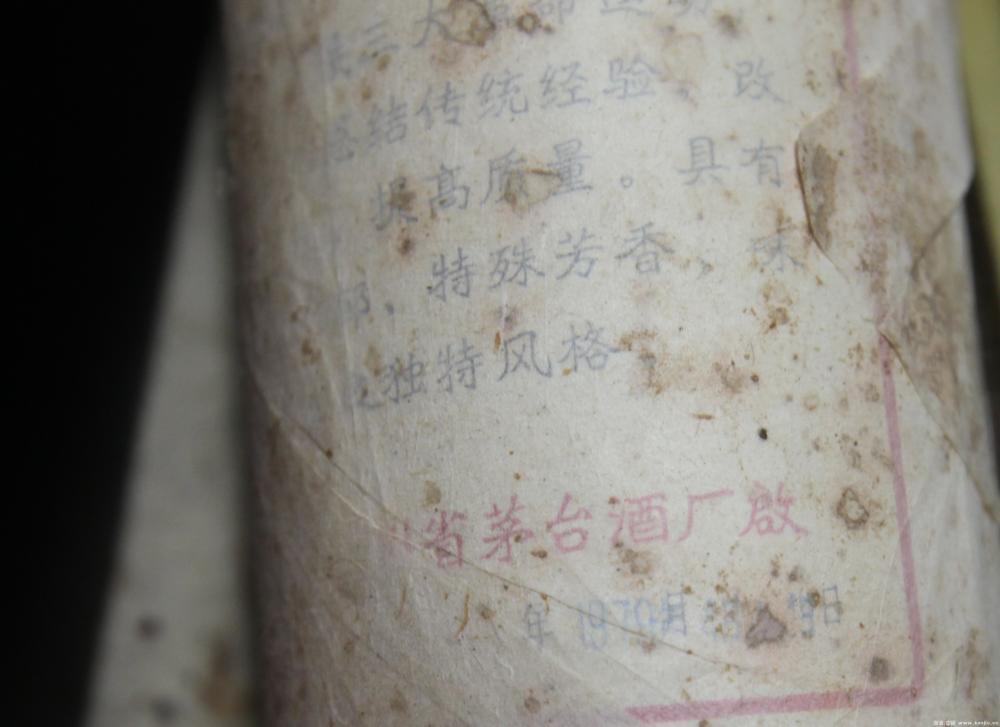 三大革命运动
总结传统经验，改
提高质量。具有
特殊芳香，味
之独特风格。
省茅台酒厂啟
年 1979 月 日